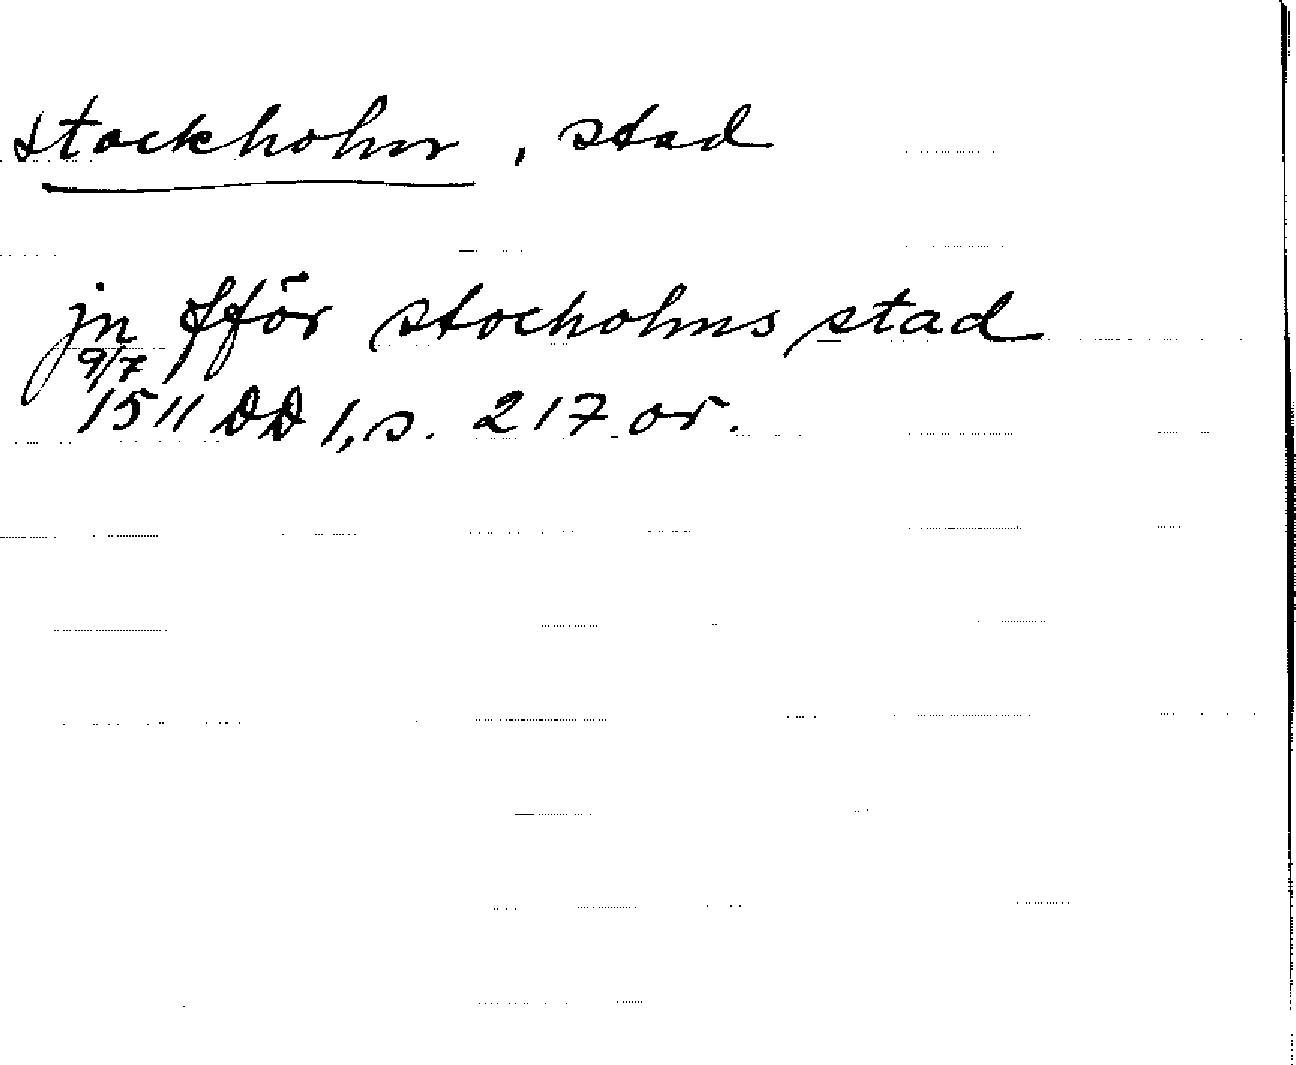 Stockholm, stad
jn fför stocholms stad
9/7
1511 DD 1, s. 217 or.